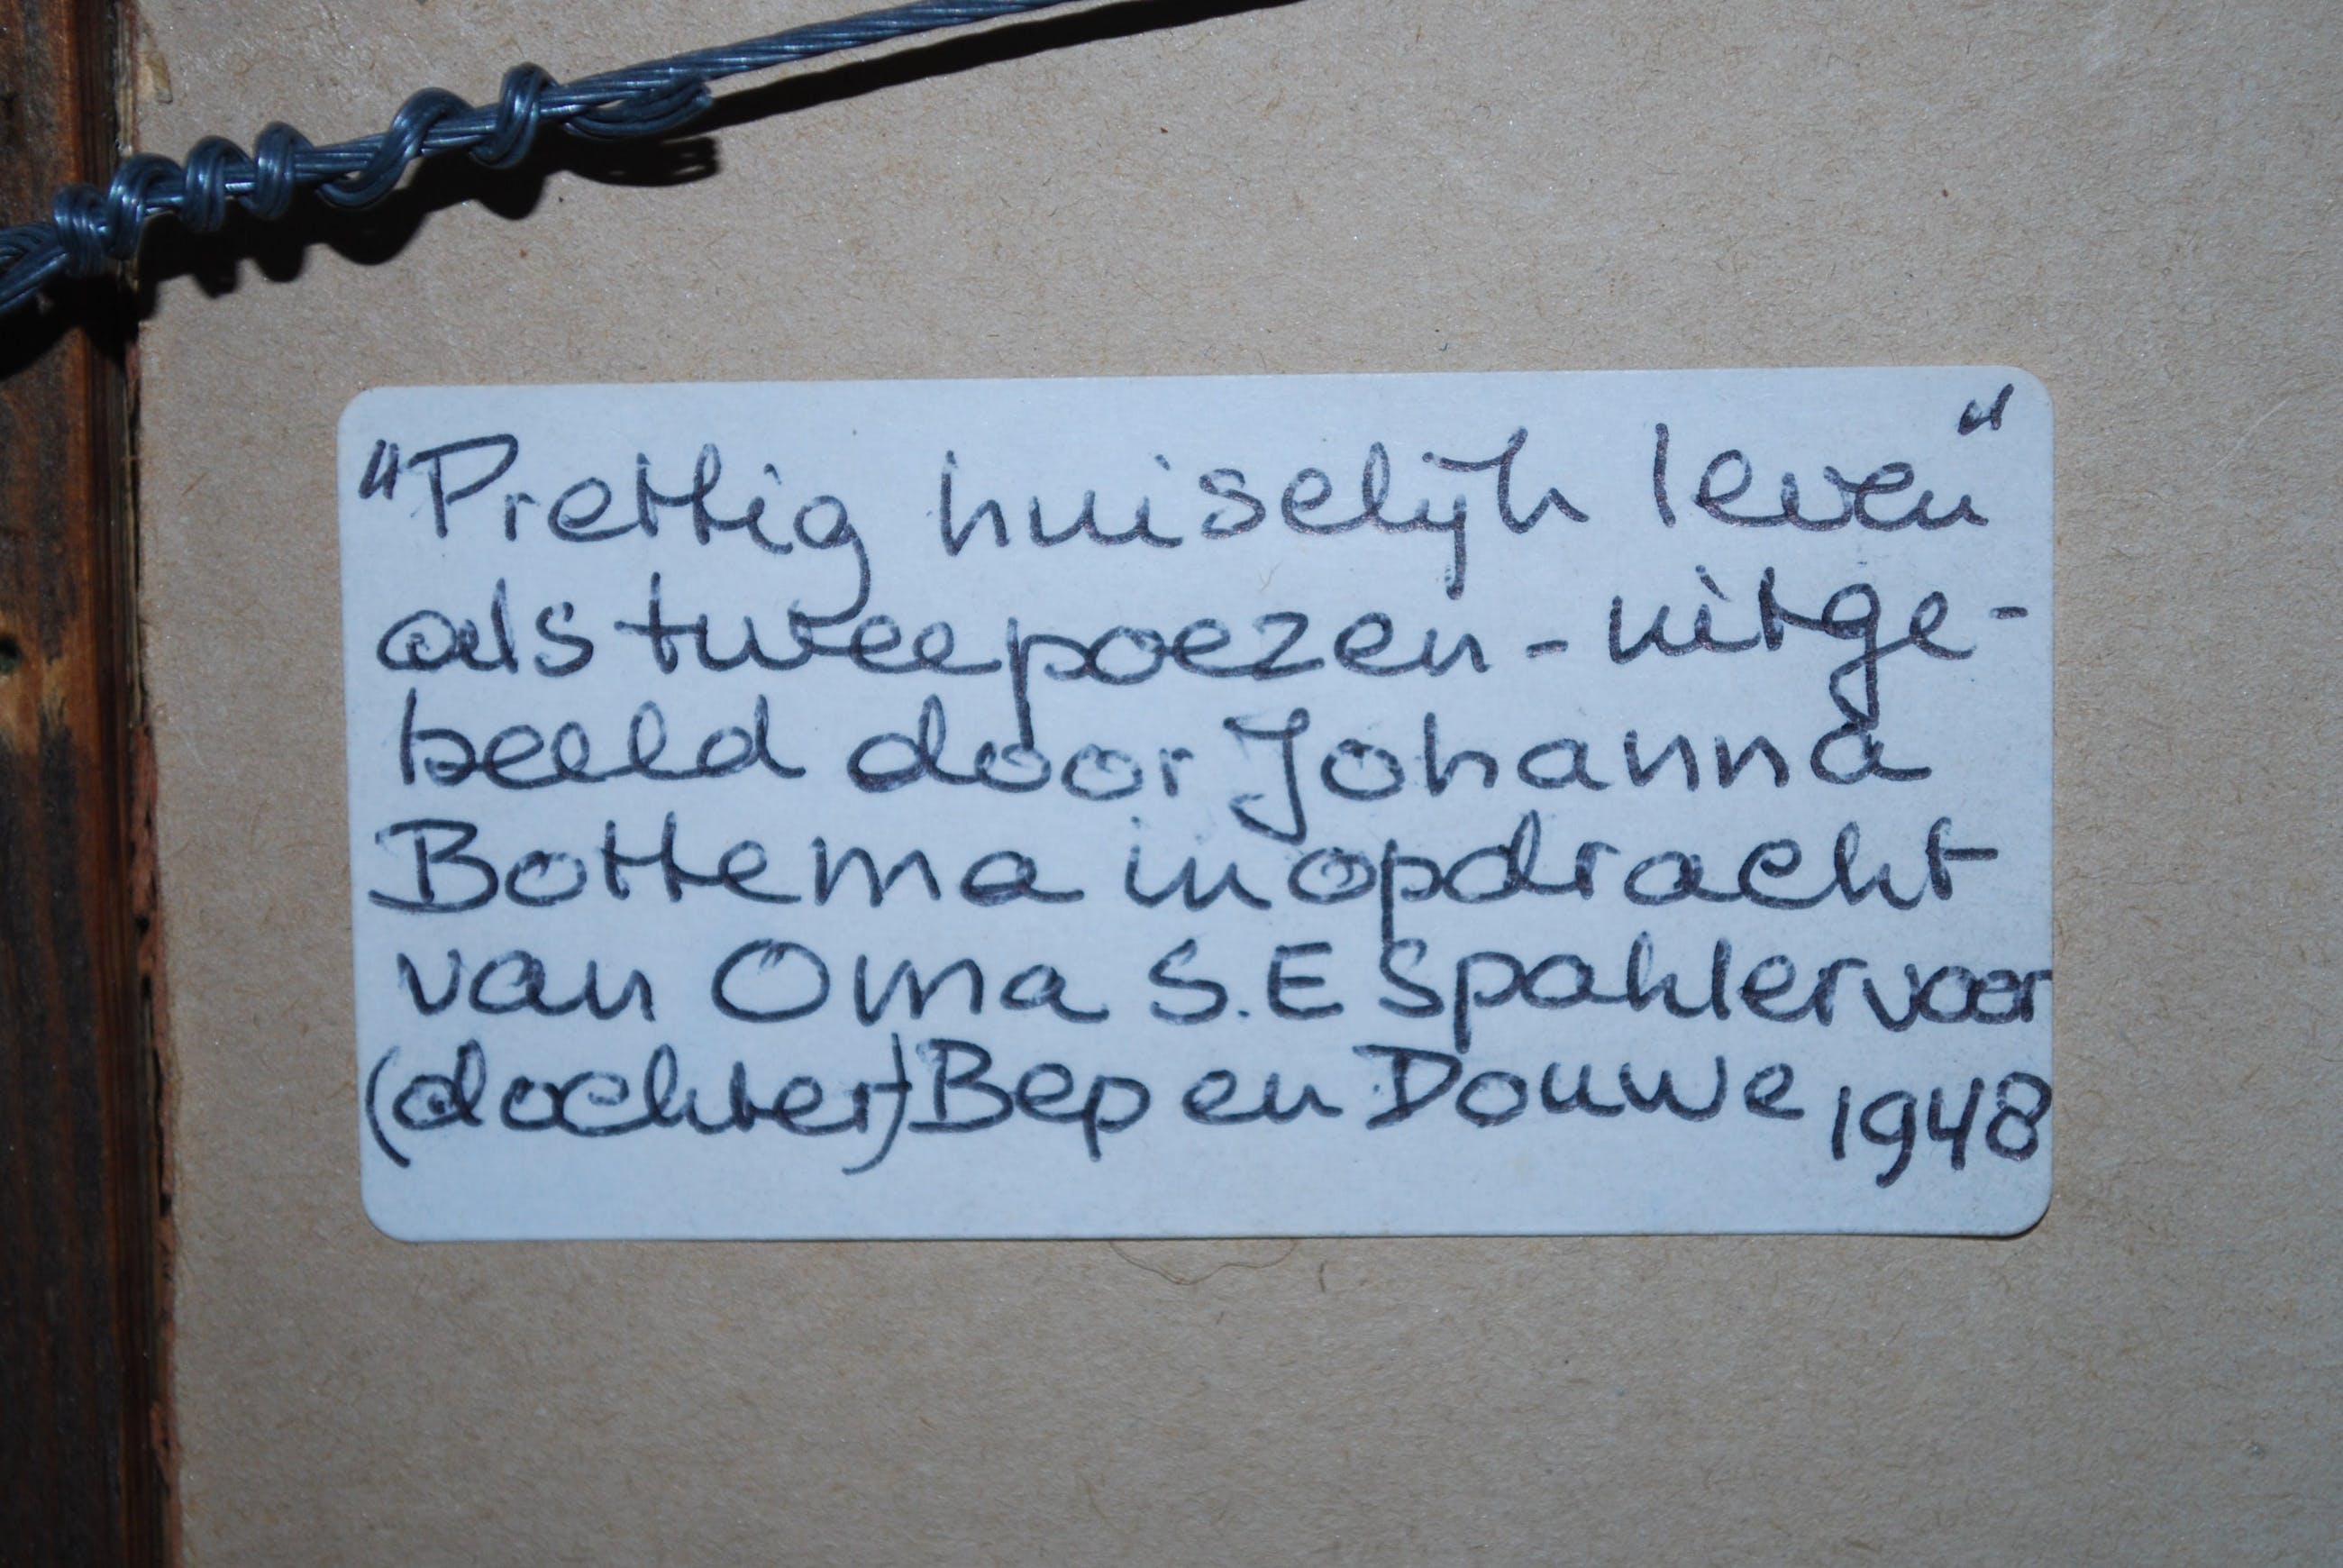 "Prettig huiselijk leven"
als twee poezen - uitge-
beeld door Johanna
Bottema in opdracht
van Oma S.E Spahler voor
(dochter) Bep en Douwe 1948